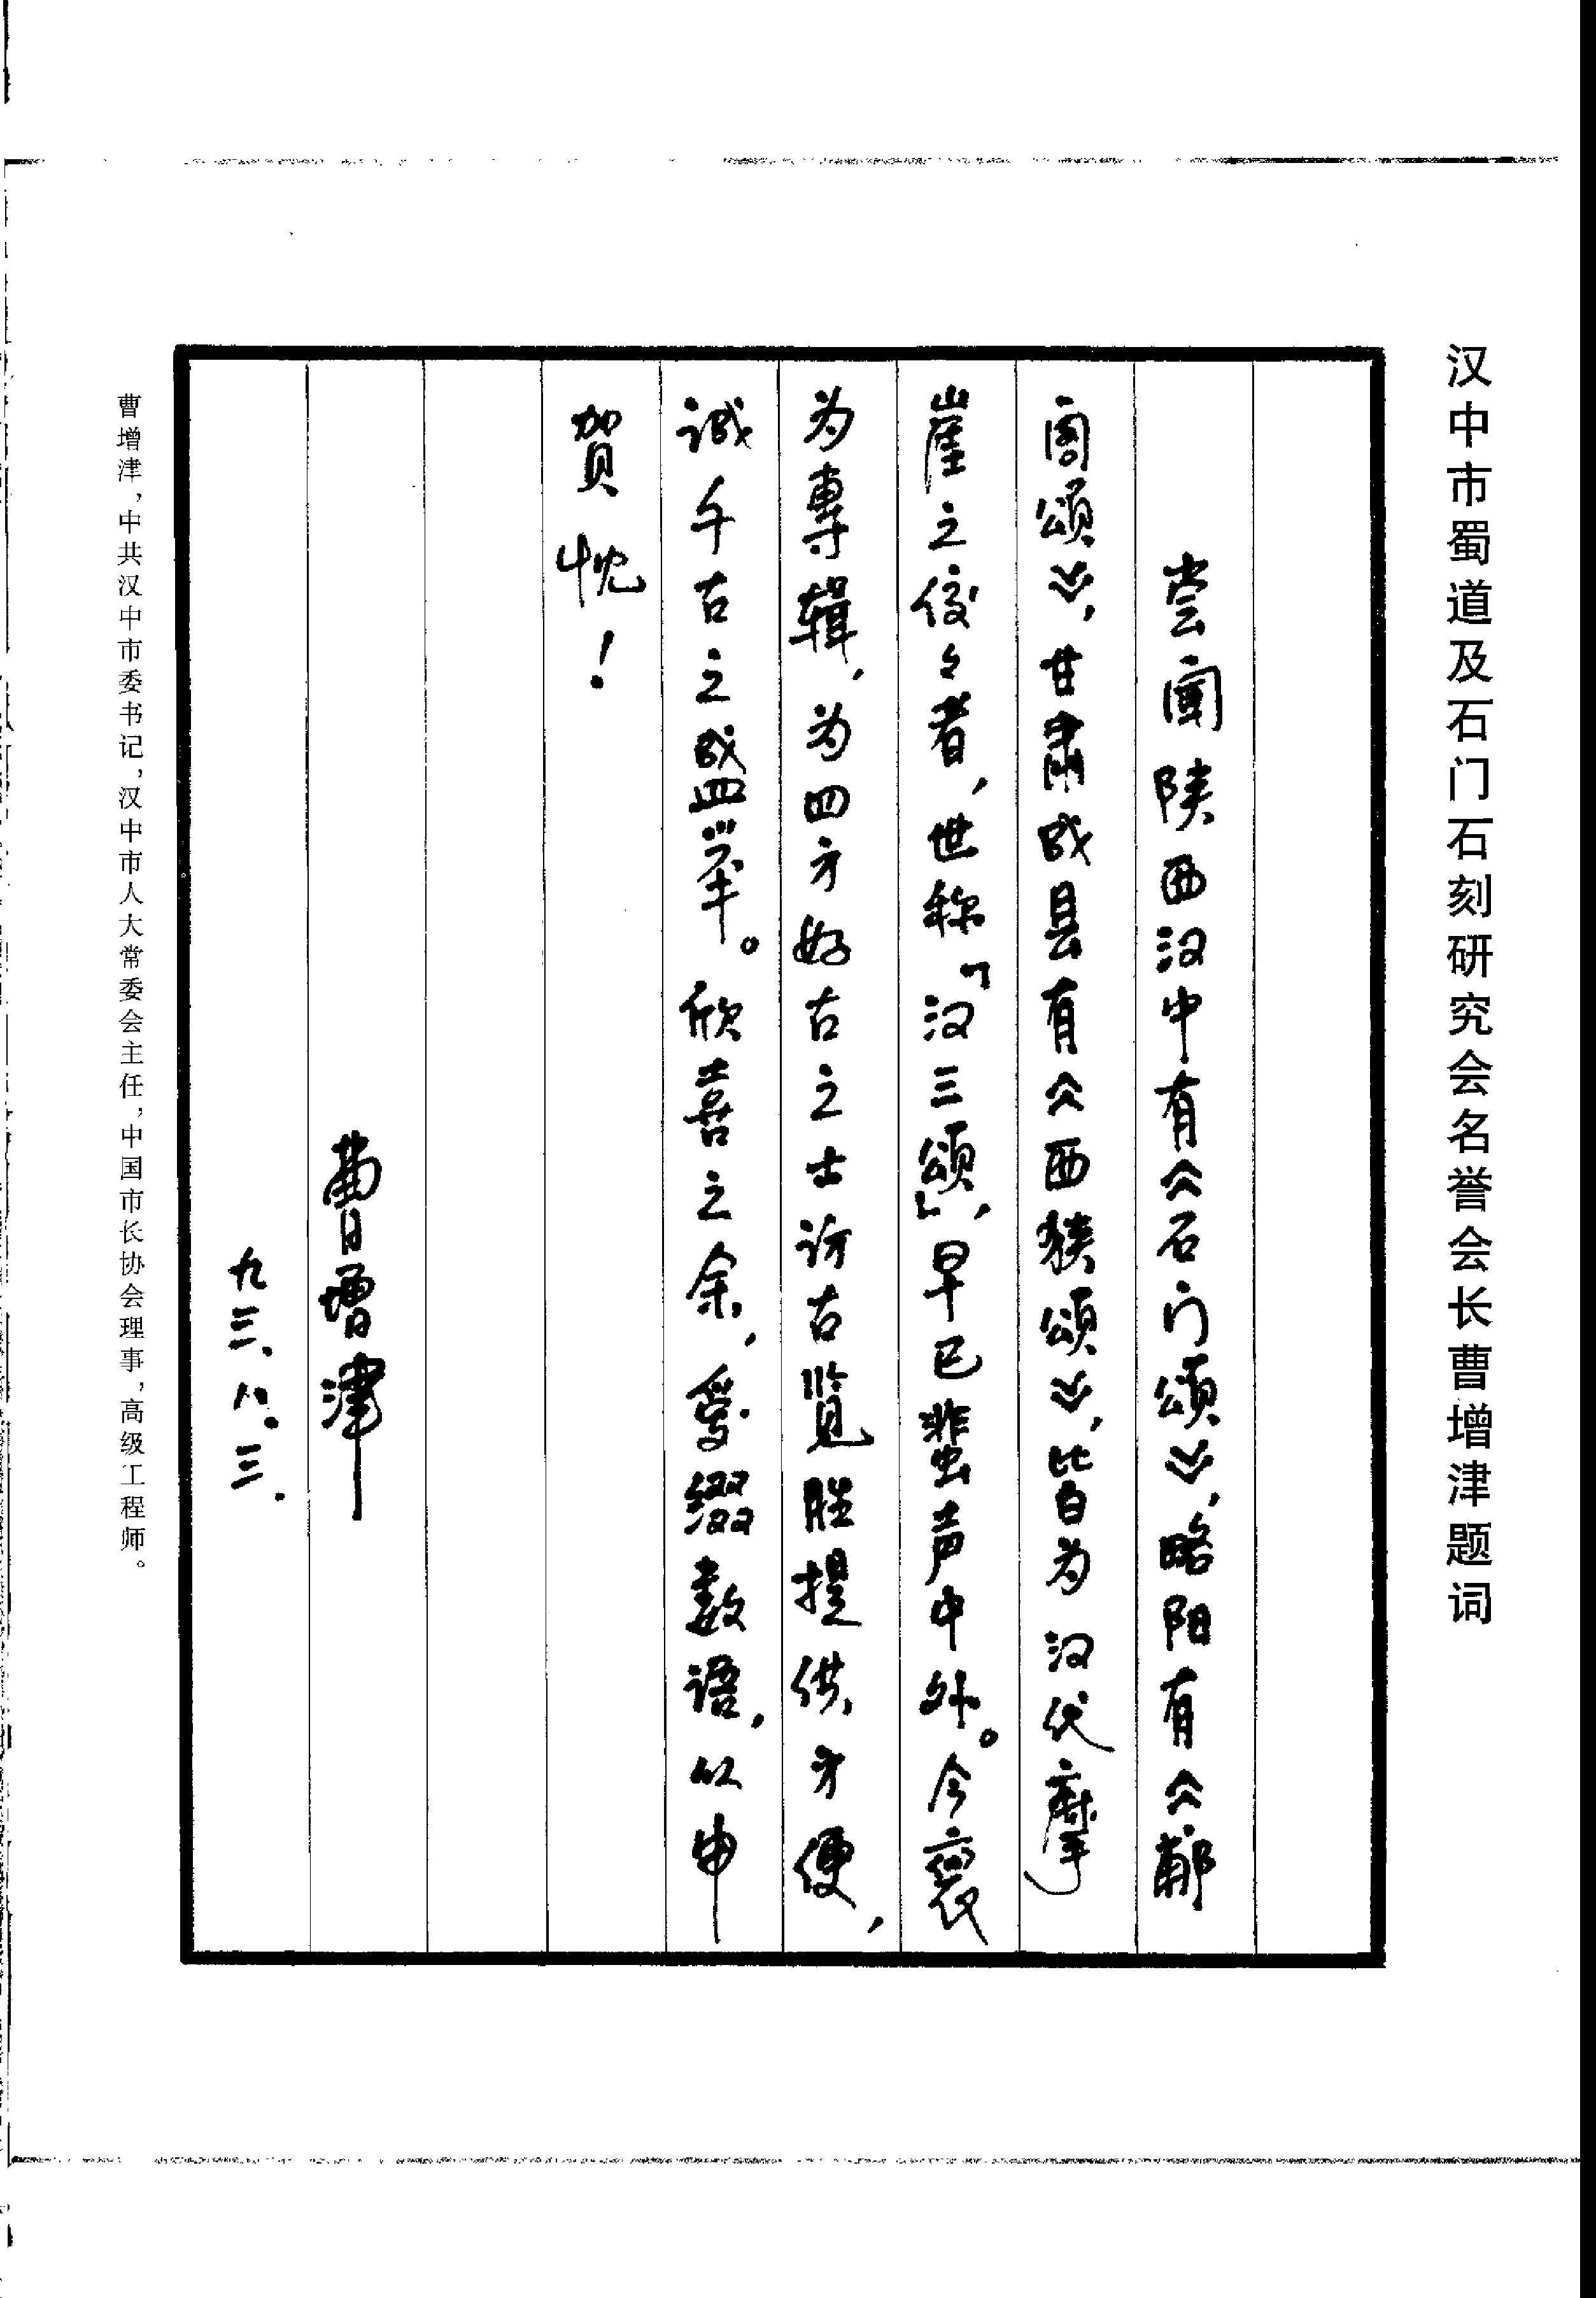 汉中市蜀道及石门石刻研究会名誉会长曹增津题词
尝闻陕西汉中有《石门颂》，略阳有《郙
阁颂》，甘肃成县有《西狭颂》，皆为汉代摩
崖之佼々者，世称「汉三颂」，早已蜚声中外。今裒
为專辑，为四方好古之士访古览胜提供方便，
诚千古之盛举。欣喜之余，爰缀数语，以申
贺忱！
曹增津
九三、八、三、
曹增津，中共汉中市委书记，汉中市人大常委会主任，中国市长协会理事，高级工程师。